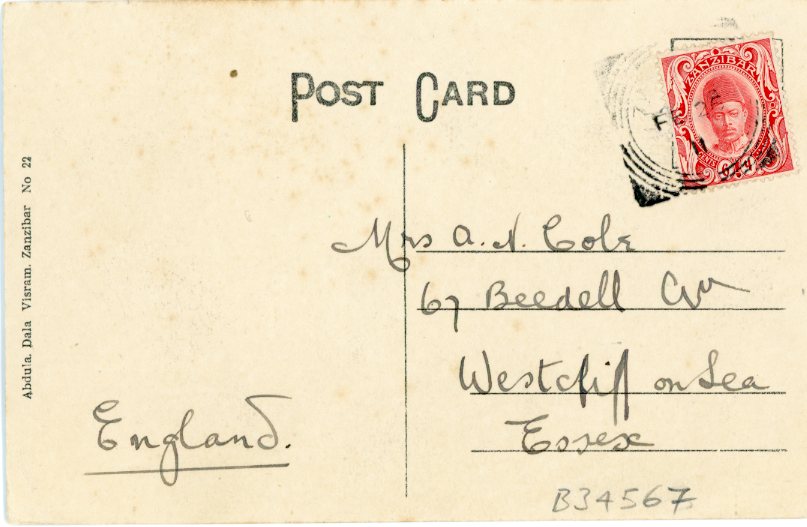 POST CARD
ZANZIBAR
FE 28
11
Abdula. Dala Visram. Zanzibar No 22
Mrs A. N. Cole
67 Beedell Av
Westcliff on Sea
Essex
England.
B34567